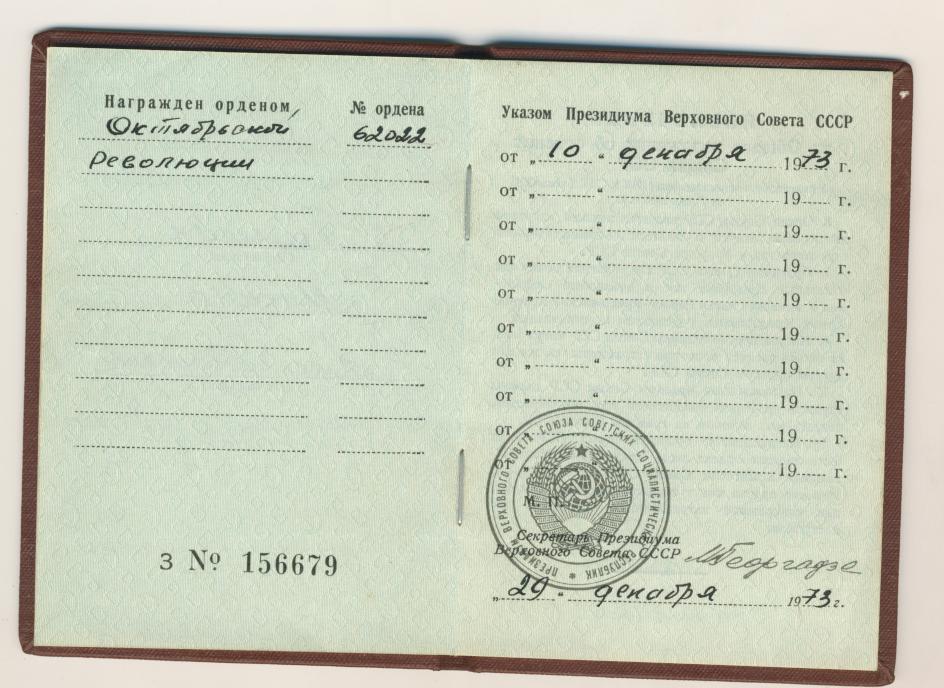 Награжден орденом
№ ордена
Октябрьской
62022
Революции
З № 156679
Указом Президиума Верховного Совета СССР
от „ 10 “ декабря 1973 г.
от „ “ 19 г.
от „ “ 19 г.
от „ “ 19 г.
от „ “ 19 г.
от „ “ 19 г.
от „ “ 19 г.
от „ “ 19 г.
от „ “ 19 г.
от „ “ 19 г.
ПРЕЗИДИУМ ВЕРХОВНОГО СОВЕТА СОЮЗА СОВЕТСКИХ СОЦИАЛИСТИЧЕСКИХ РЕСПУБЛИК
М. П.
Секретарь Президиума
Верховного Совета СССР
МГеоргадзе
„ 29 “ декабря 1973 г.